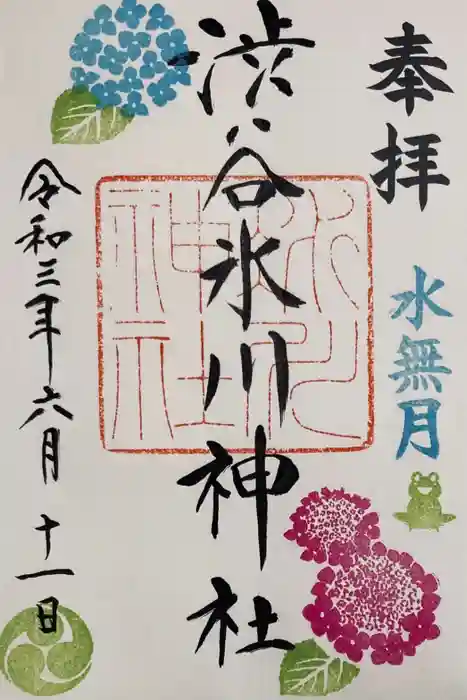 奉拝
水無月
渋谷氷川神社
氷川
神社
令和三年六月十一日